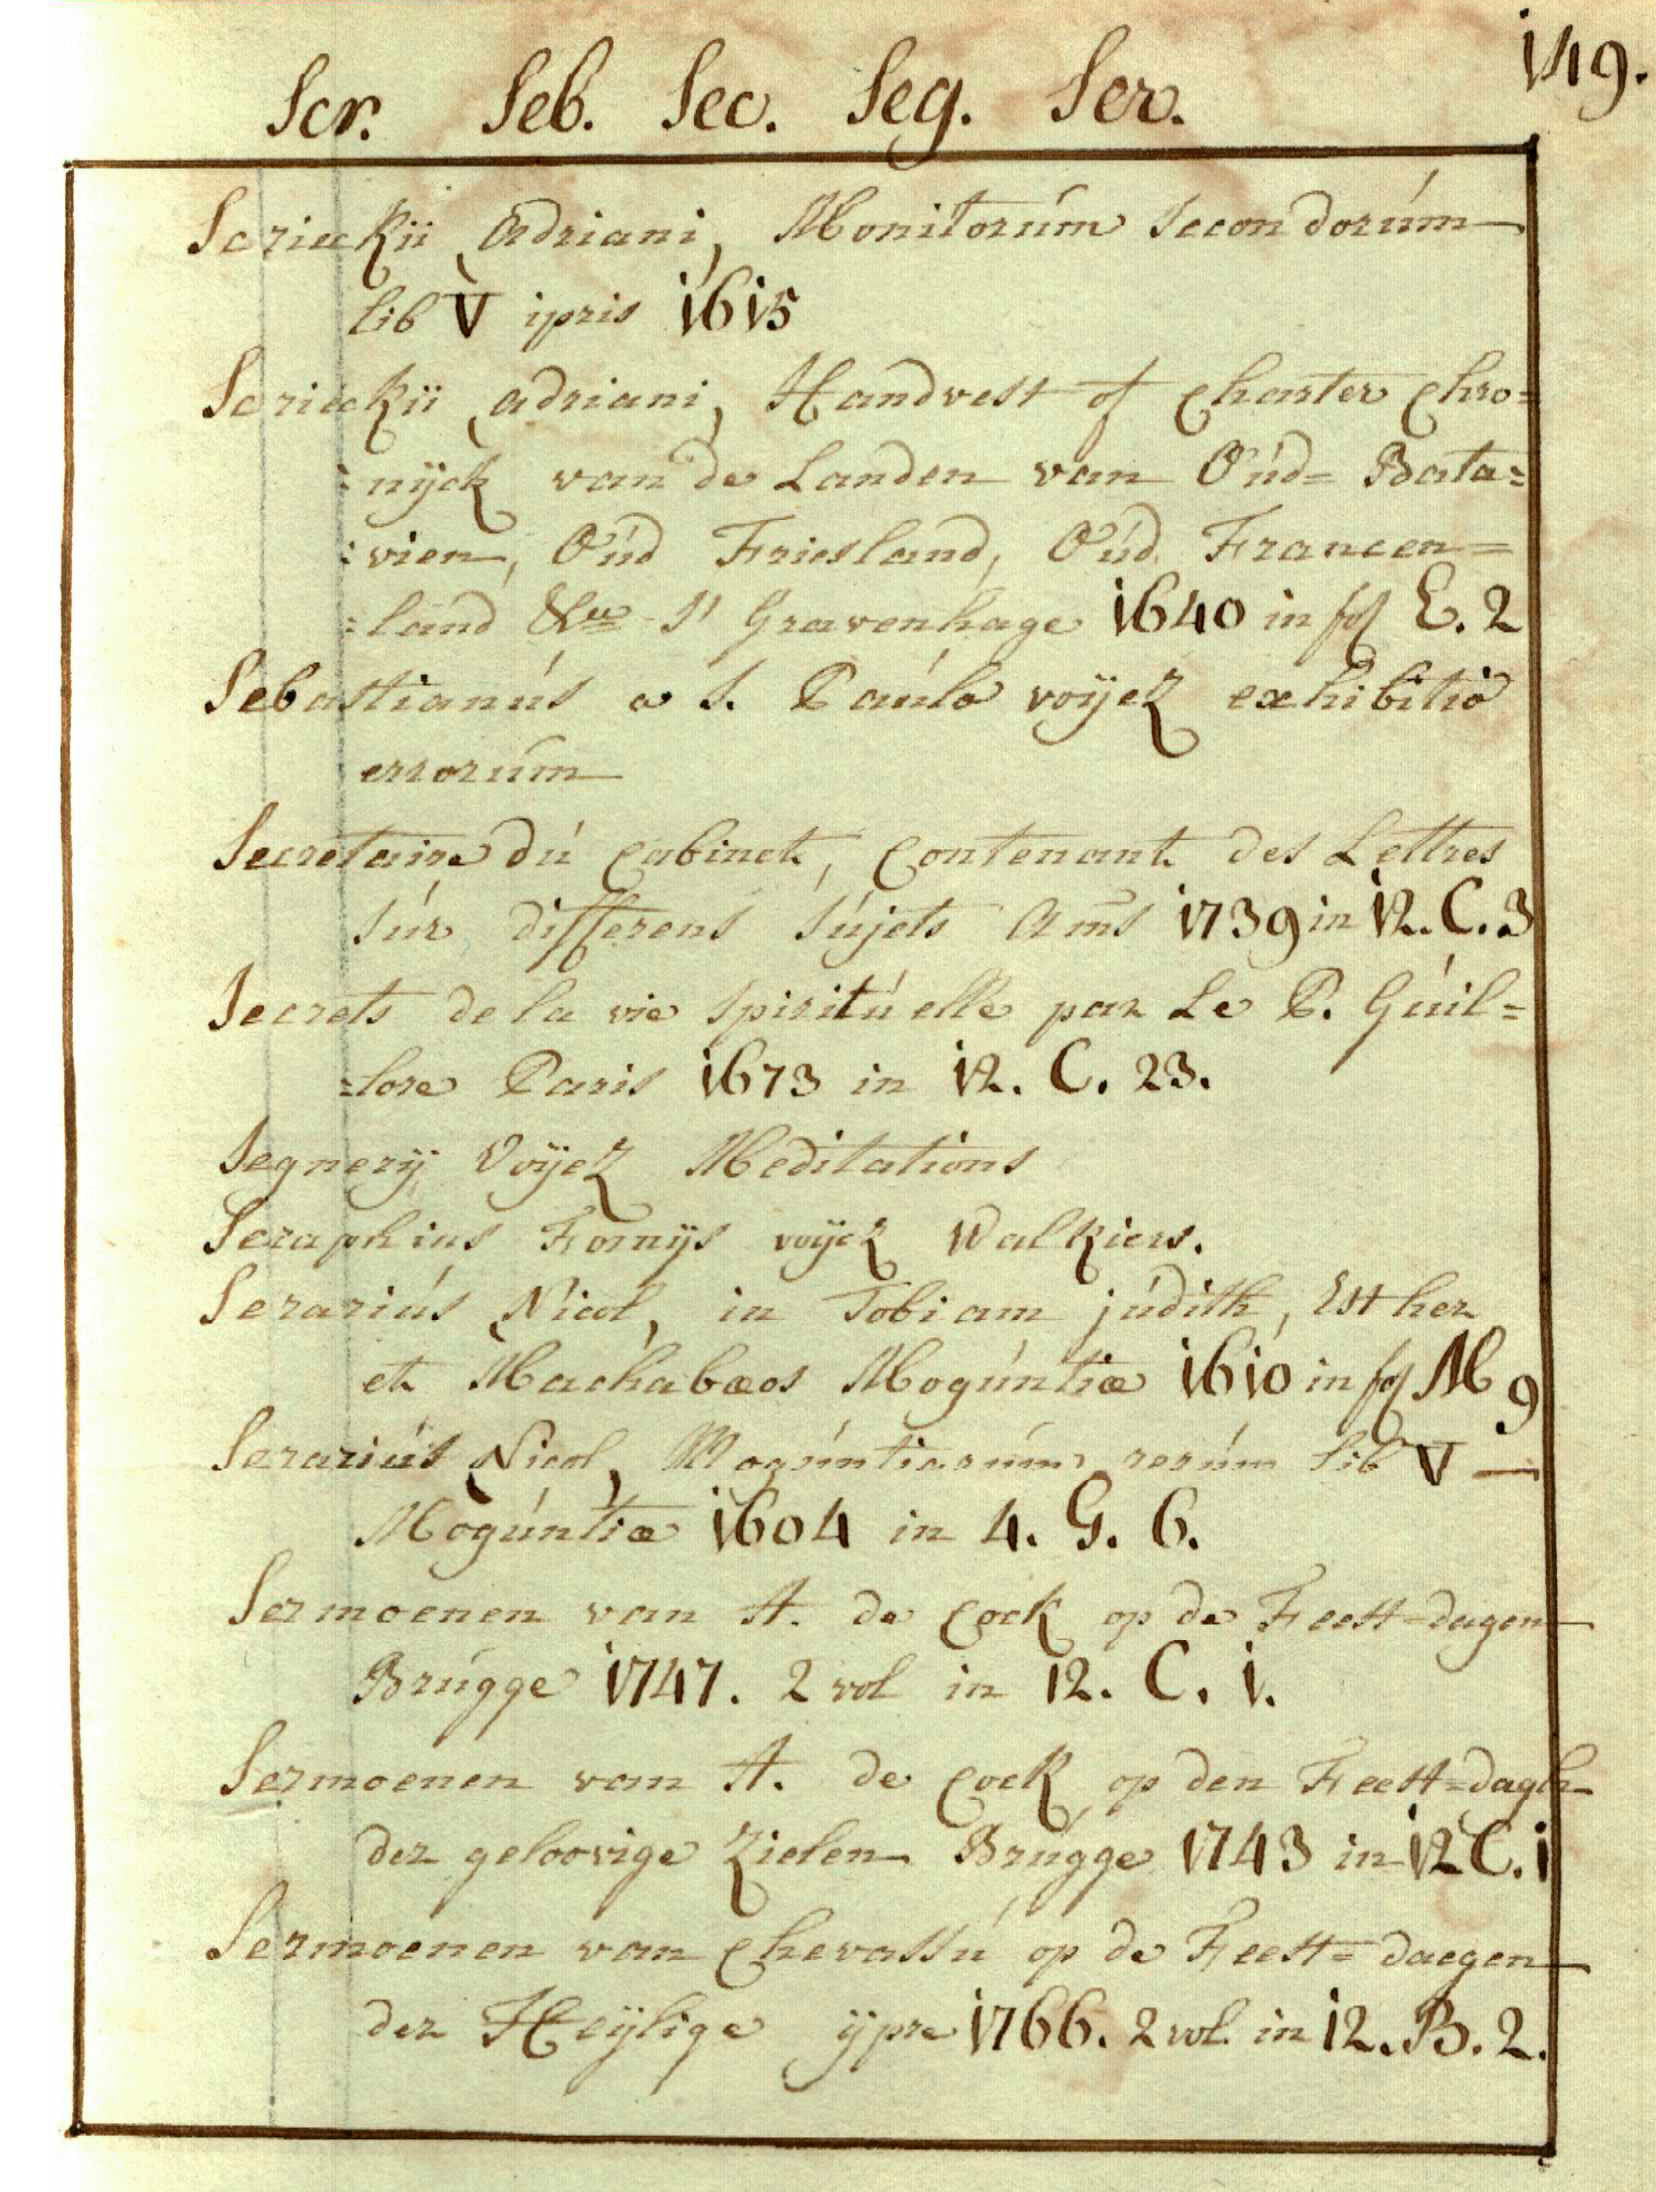 149.
Scr. Seb. Sec. Seg. Ser.
Scrieckii Adriani, Monitorúm Secondorúm
lib V ipris 1615
Scrieckii adriani, Handvest of Charter Chro=
:nÿck van de Landen van Oúd= Bata=
:vien, Oúd Friesland, Oúd Francen=
:land &ca S' Gravenhage 1640 in fol E. 2
Sebastianús a S. Paúlo voÿez exhibitio
errorúm
Secretaire dú Cabinet, Contenant des Lettres
súr differens Sújets Ams 1739 in 12. C. 3
Secrets de la vie Spiritúelle par Le P. Gúil=
=lore Paris 1673 in 12. C. 23.
Segnerÿ Voÿez Meditations
Seraphins Fornÿs voÿez Walkiers.
Serariús Nicol, in Tobiam júdith, Esther
et Machabæos Mogúntiæ 1610 in fol M 9
Serariús Nicol, Mogúntiarúm rerúm lib V
Mogúntiæ 1604 in 4. G. 6.
Sermoenen van A. de Cock op de Feest=dagen
Brúgge 1747. 2 vol in 12. C. 1.
Sermoenen van A. de Cock op den Feest=dagh
der geloovige Zielen Brúgge 1743 in 12 C. 1
Sermoenen van Chevassú op de Feest=daegen
der Heÿlige ÿpre 1766. 2 vol. in 12. B. 2.